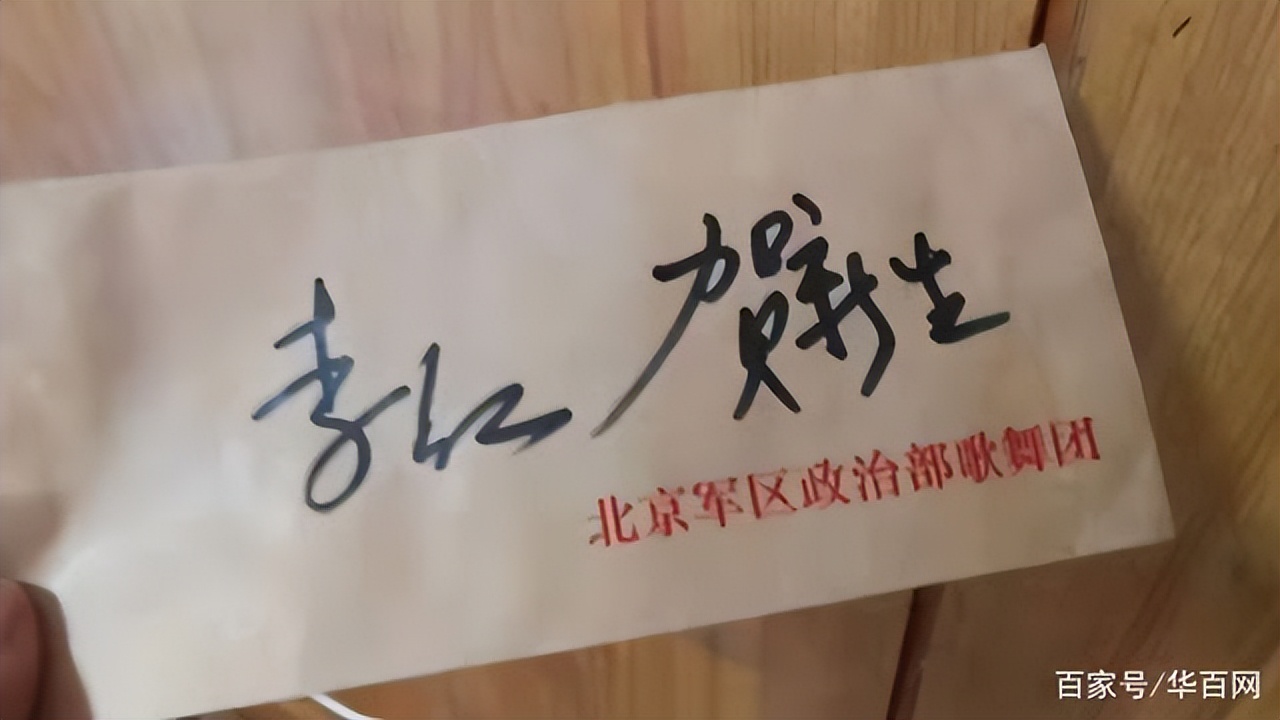 李红 贺新生
北京军区政治部歌舞团
百家号/华百网